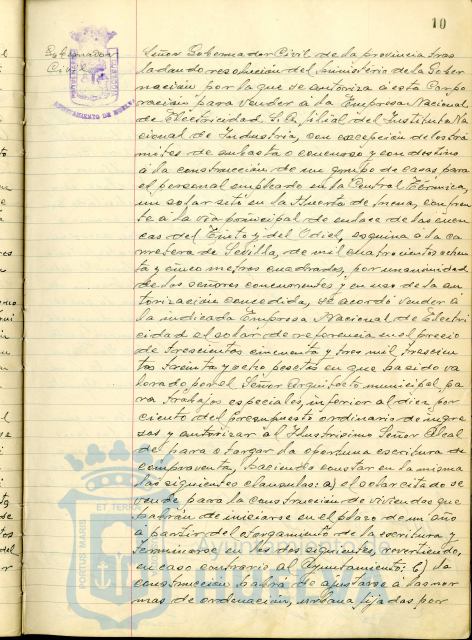 10
Gobernador
Civil
AYUNTAMIENTO DE HUELVA
Señor Gobernador Civil de la provincia tras
ladando resolución del Ministerio de la Gober
nación por la que se autoriza á esta Corpo
ración para vender á la Empresa Nacional
de Electricidad S.A. filial del Instituto Na
cional de Industria, con excepción de los trá
mites de subasta o concurso y con destino
á la construcción de un grupo de casas para
el personal empleado en la Central Térmica,
un solar sito en la Huerta de Mena, con fren
te á la vía principal de enlace de las cuen
cas del Tinto y del Odiel, esquina á la ca
rretera de Sevilla, de mil cuatrocientos ochen
ta y cinco metros cuadrados, por unanimidad
de los señores concurrentes y en uso de la au
torización concedida, se acordó vender á
la indicada Empresa Nacional de Electri
cidad el solar de referencia en el precio
de trescientos cincuenta y tres mil trescien
tas treinta y ocho pesetas en que ha sido va
lorado por el Señor Arquitecto municipal pa
ra trabajos especiales, inferior al diez por
ciento del presupuesto ordinario de ingre
sos y autorizar al Ilustrísimo Señor Alcal
de para otorgar la oportuna escritura de
compraventa, haciendo constar en la misma
las siguientes cláusulas: a) el solar citado se
vende para la construcción de viviendas que
habrán de iniciarse en el plazo de un año
á partir del otorgamiento de la escritura y
terminarse en los dos siguientes, revertiendo,
en caso contrario al Ayuntamiento: b) la
construcción habrá de ajustarse á las nor
mas de ordenación urbana fijadas por
PORTUS MARIS ET TERRAE
Ayuntamiento de
HUELVA